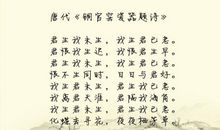 唐代《铜官窑瓷器题诗》
君生我未生，我生君已老。
君恨我生迟，我恨君生早。
君生我未生，我生君已老。
恨不生同时，日日与君好。
我生君未生，君生我已老。
我离君天涯，君隔我海角。
我生君未生，君生我已老。
化蝶去寻花，夜夜栖芳草。